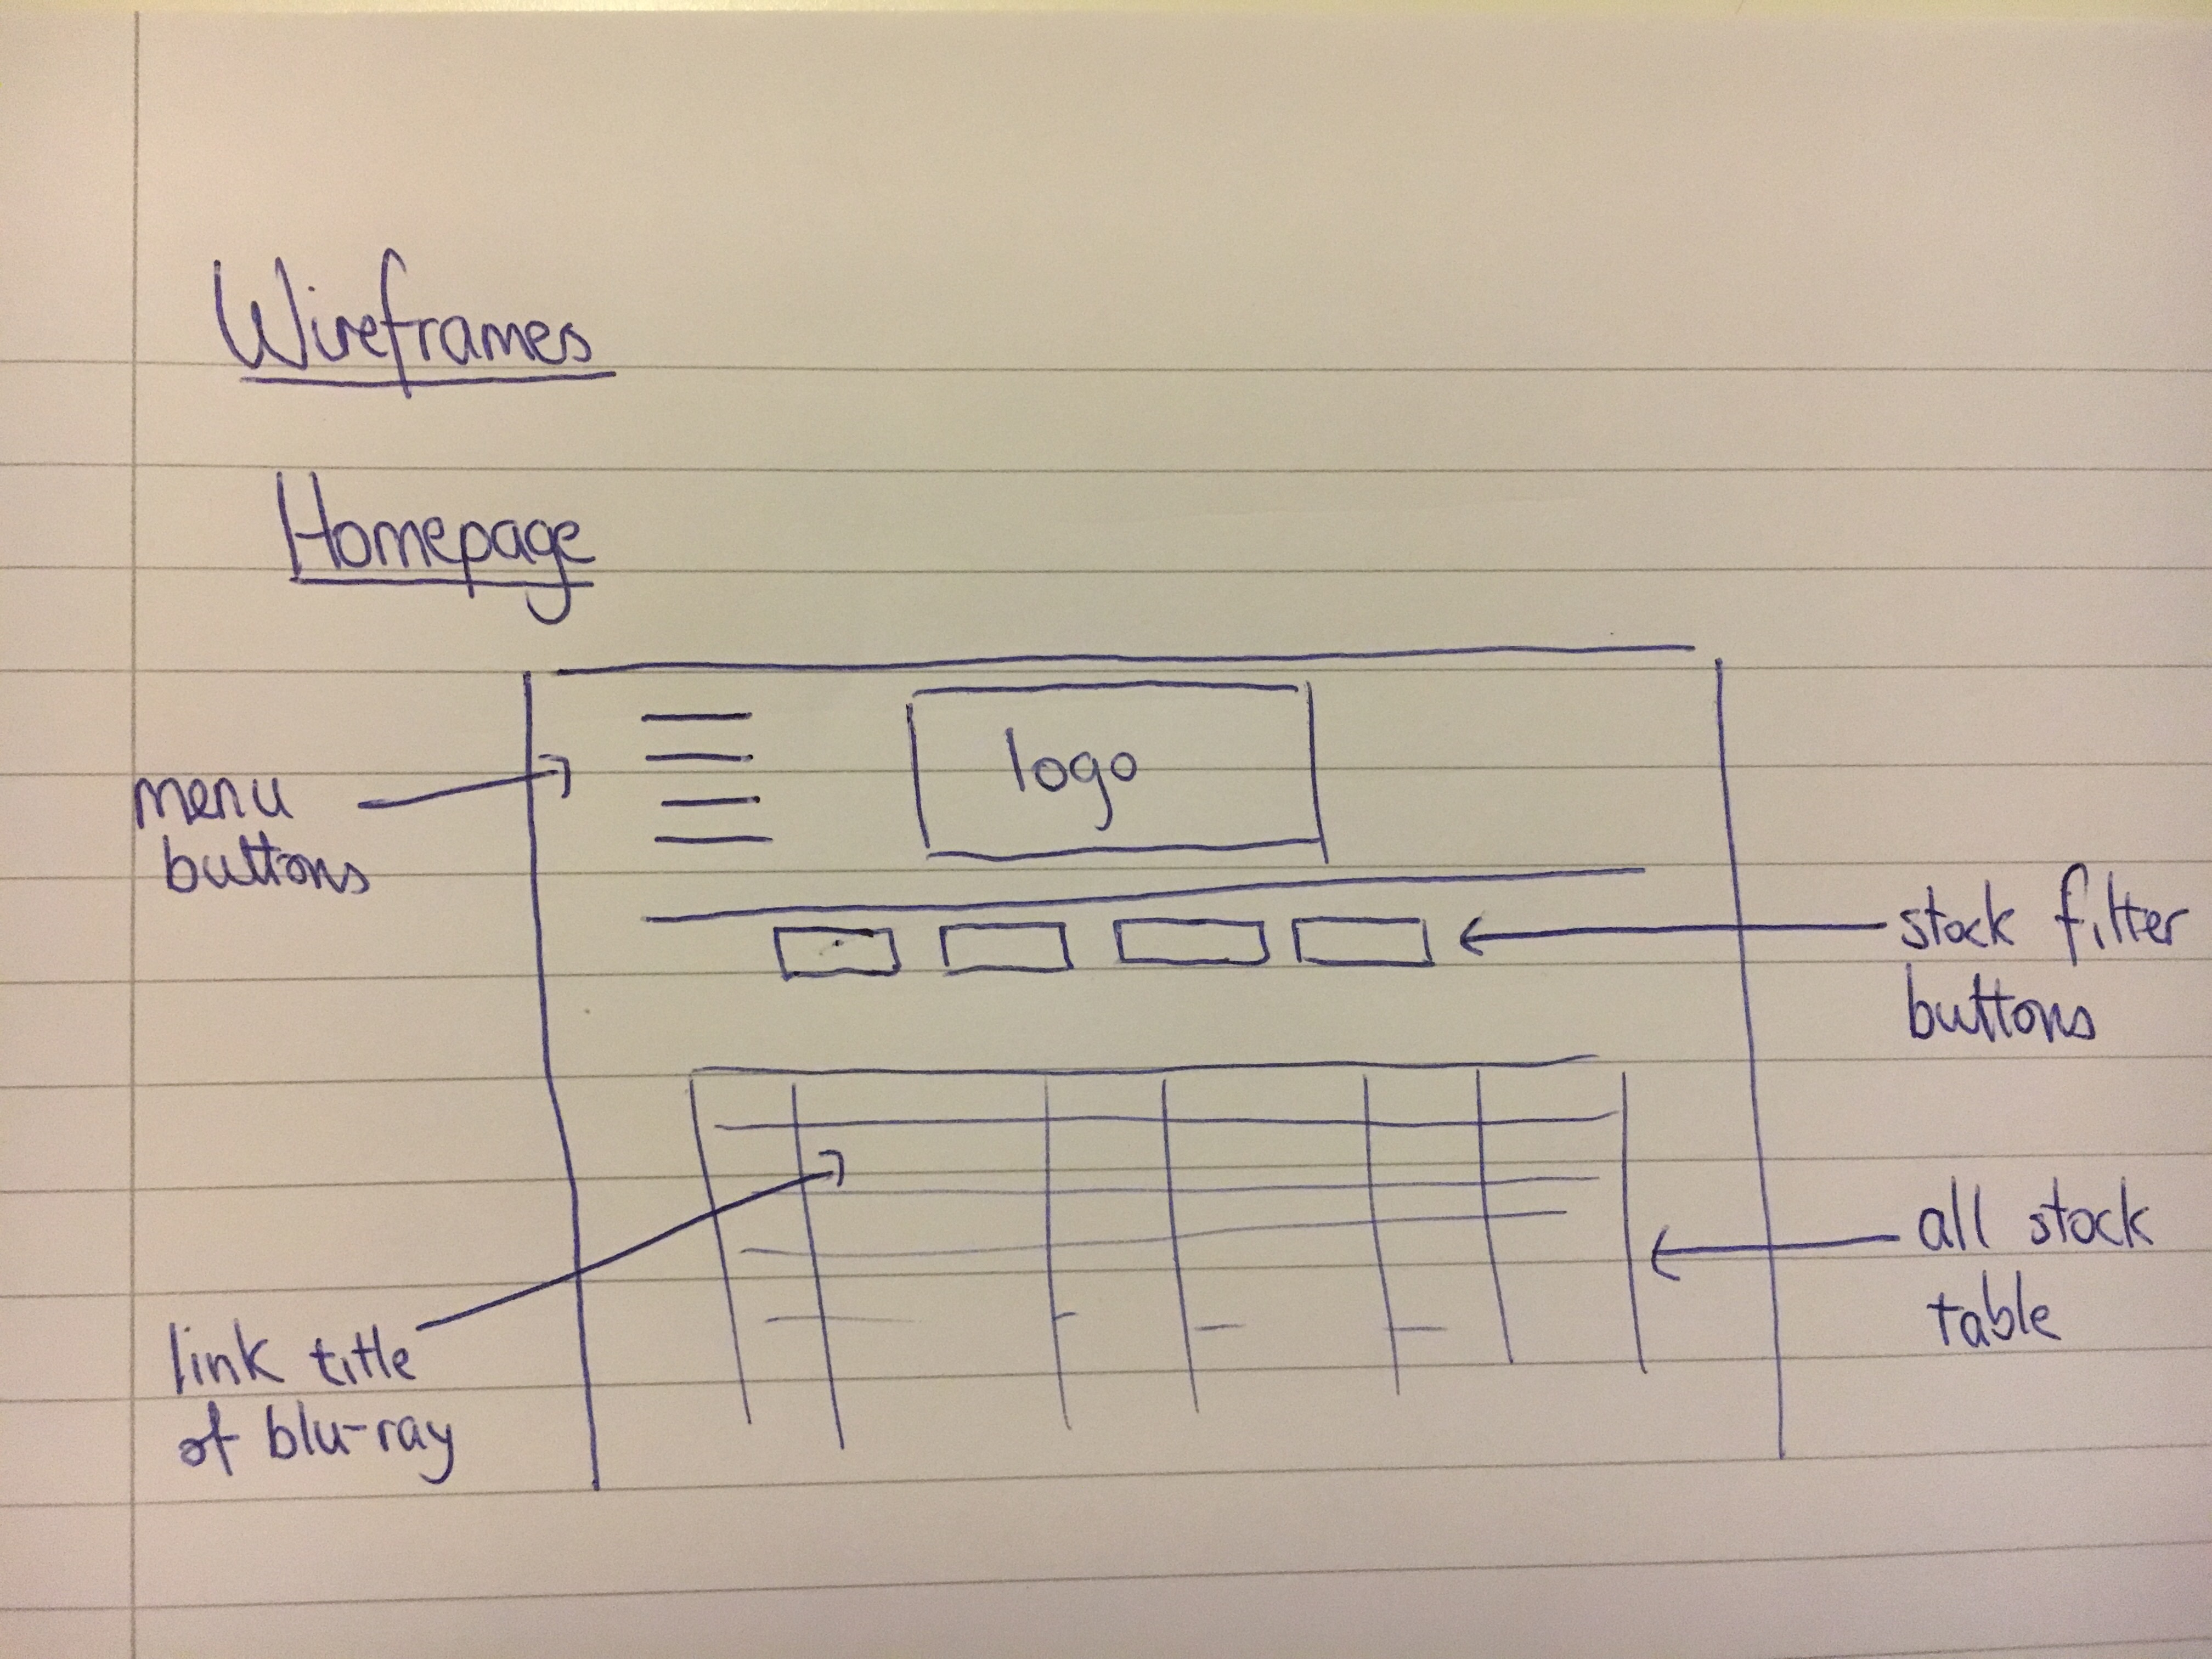 Wireframes
Homepage
logo
menu
buttons
stock filter
buttons
all stock
table
link title
of blu-ray